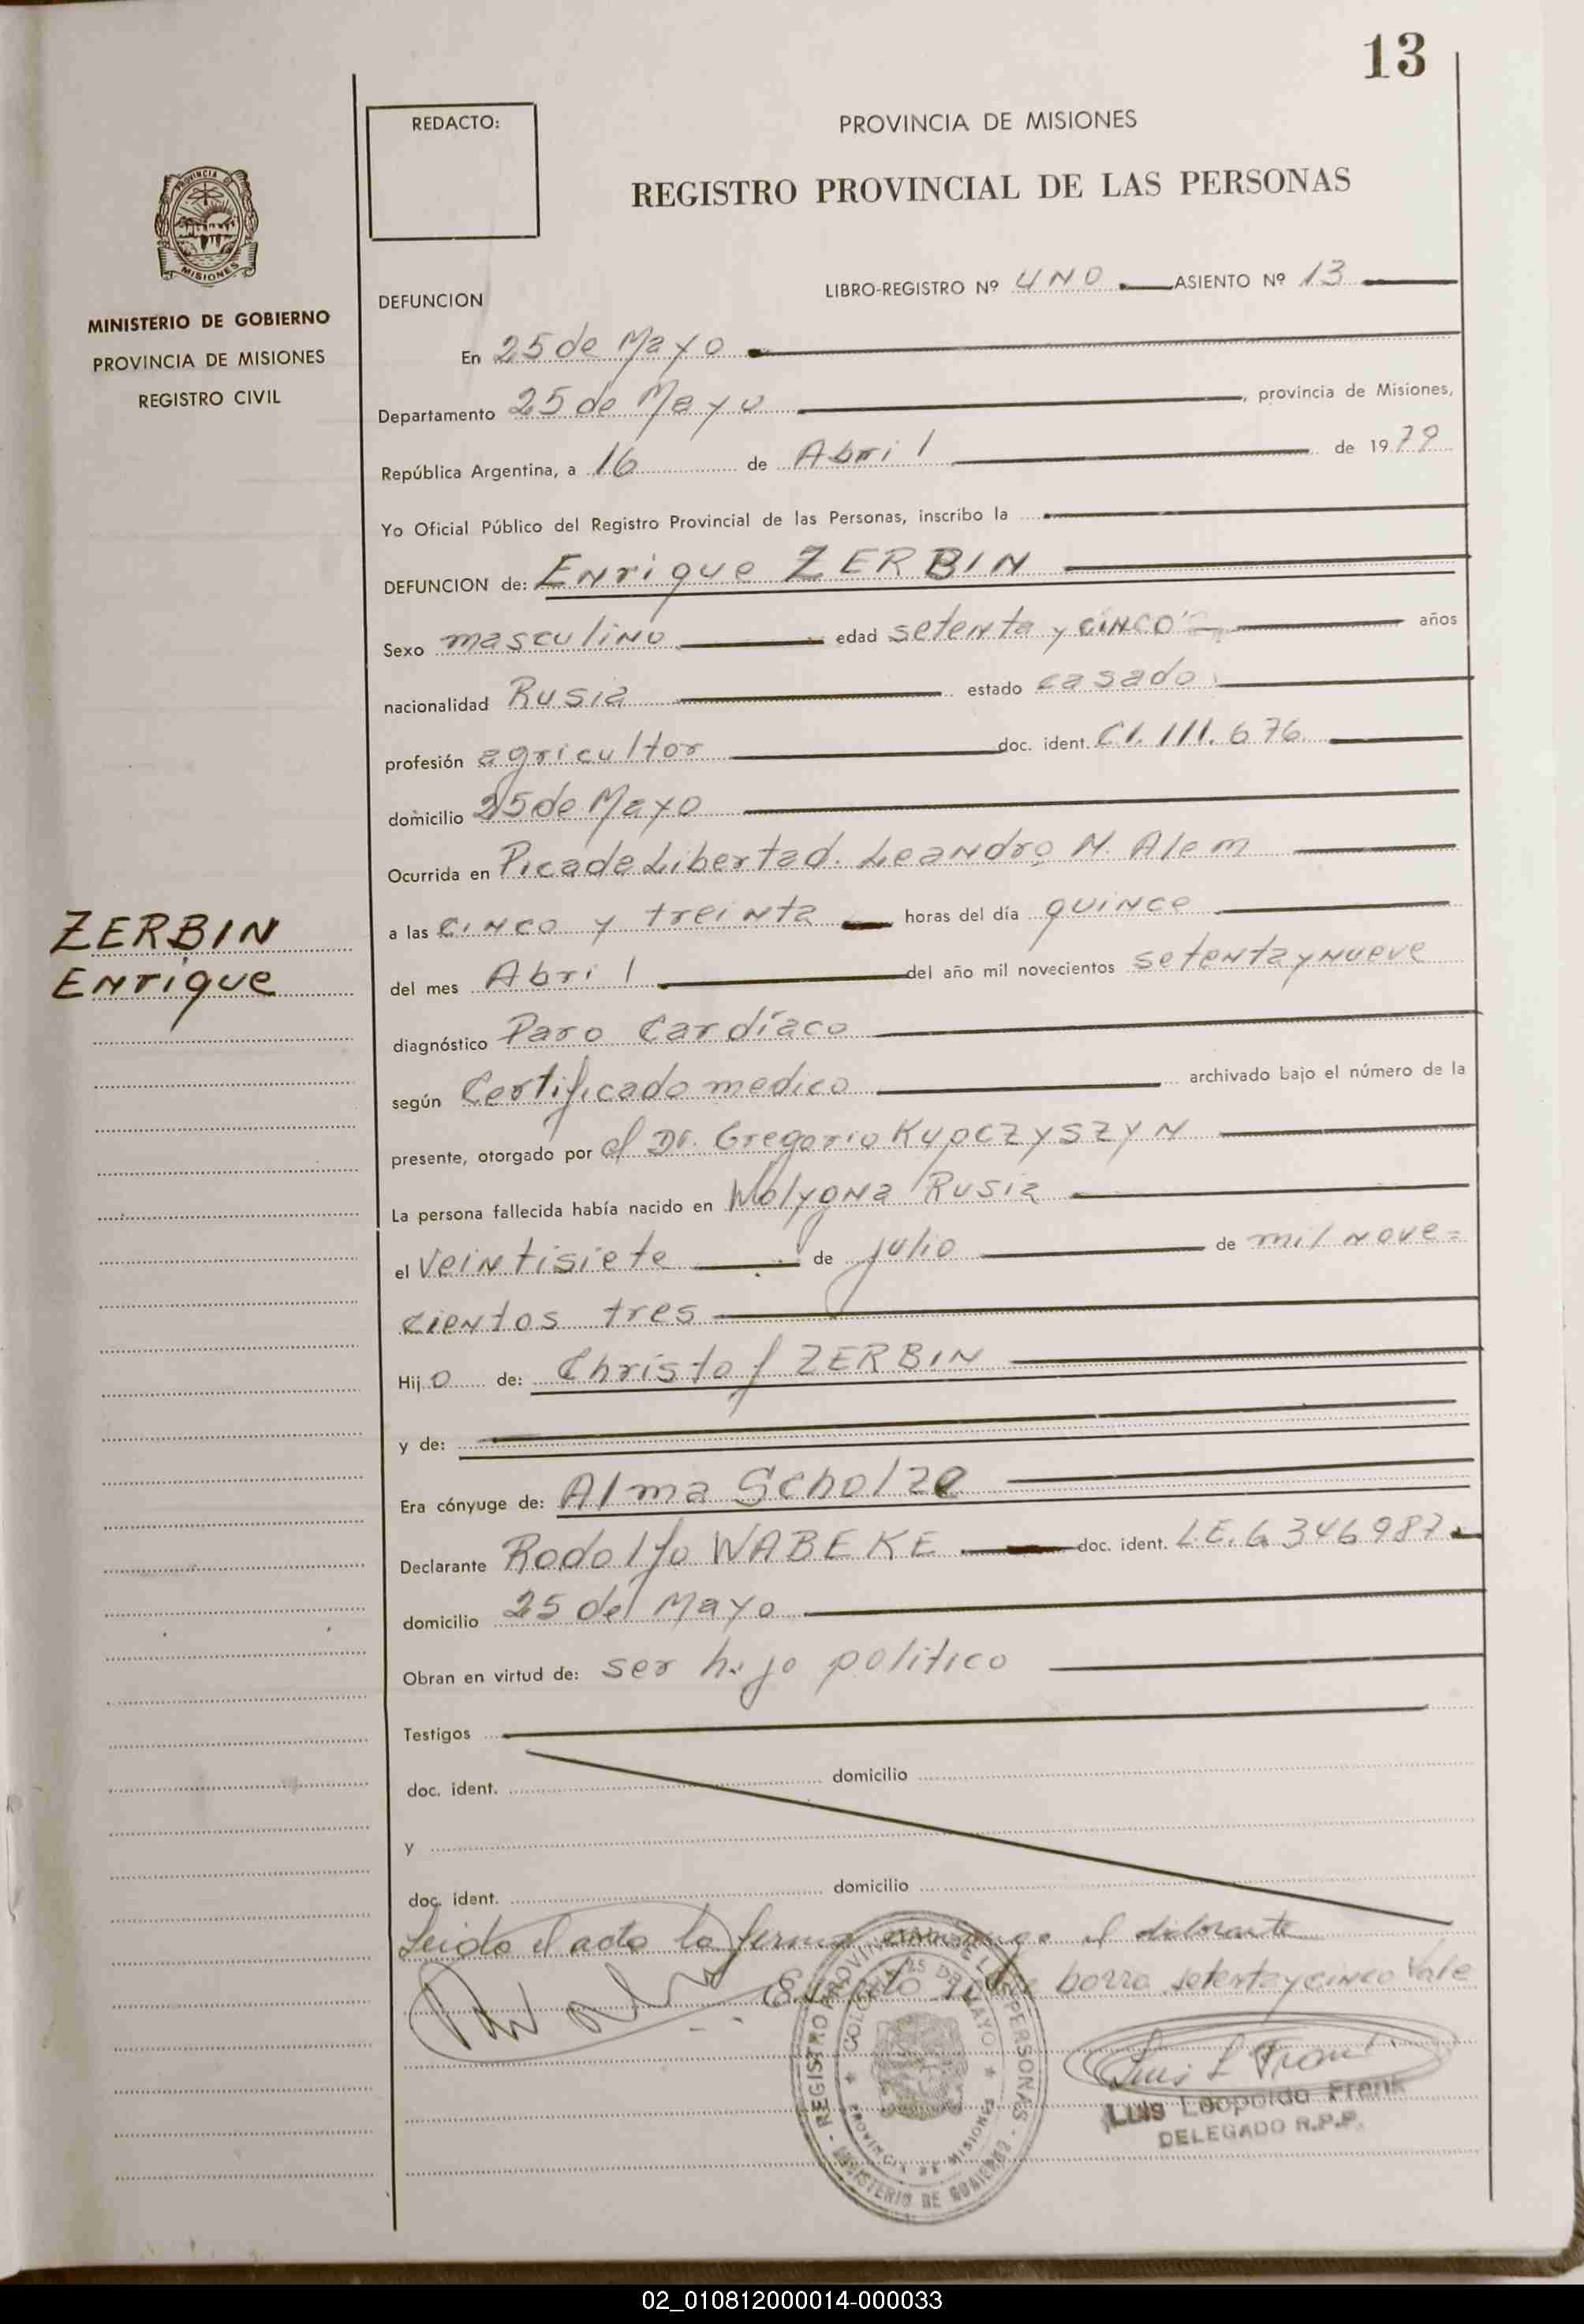 13
REDACTO:
PROVINCIA DE MISIONES
REGISTRO PROVINCIAL DE LAS PERSONAS
PROVINCIA DE
MISIONES
MINISTERIO DE GOBIERNO
PROVINCIA DE MISIONES
REGISTRO CIVIL
DEFUNCION
LIBRO-REGISTRO Nº UNO ASIENTO Nº 13
En 25 de Mayo
Departamento 25 de Mayo, provincia de Misiones,
República Argentina, a 16 de Abril de 1979
Yo Oficial Público del Registro Provincial de las Personas, inscribo la
DEFUNCION de: Enrique ZERBIN
Sexo masculino edad setenta y cinco años
nacionalidad Rusia estado casado
profesión agricultor doc. ident. C.I. 111.676
domicilio 25 de Mayo
Ocurrida en Picade Libertad. Leandro N. Alem
a las cinco y treinta horas del día quince
del mes Abril del año mil novecientos setenta y nueve
ZERBIN
Enrique
diagnóstico Paro Cardíaco
según Certificado medico archivado bajo el número de la
presente, otorgado por el Dr. Gregorio KUPCZYSZYN
La persona fallecida había nacido en Wolyona Rusia
el veintisiete de julio de mil nove=
cientos tres
Hijo de: Christof ZERBIN
y de:
Era cónyuge de: Alma Scholze
Declarante Rodolfo WABEKE doc. ident. L.E. 6 346 987
domicilio 25 de Mayo
Obran en virtud de: ser hijo politico
Testigos
doc. ident. domicilio
y
doc. ident. domicilio
Leido el acta la firma conmigo el declarante
borro setenta y cinco Vale
REGISTRO PROVINCIAL DE LAS PERSONAS
COLONIA 25 DE MAYO
PROVINCIA DE MISIONES
MINISTERIO DE GOBIERNO
Luis Leopoldo Frenk
DELEGADO R.P.P.
02_010812000014-000033